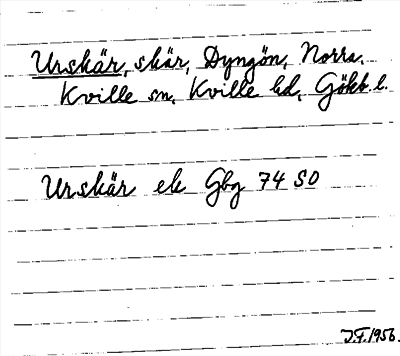 Urskär, skär, Dyngön, Norra,
Kville sn, Kville hd, Gökb. l.
Urskär ek Gbg 74 SO
J.F. 1956.